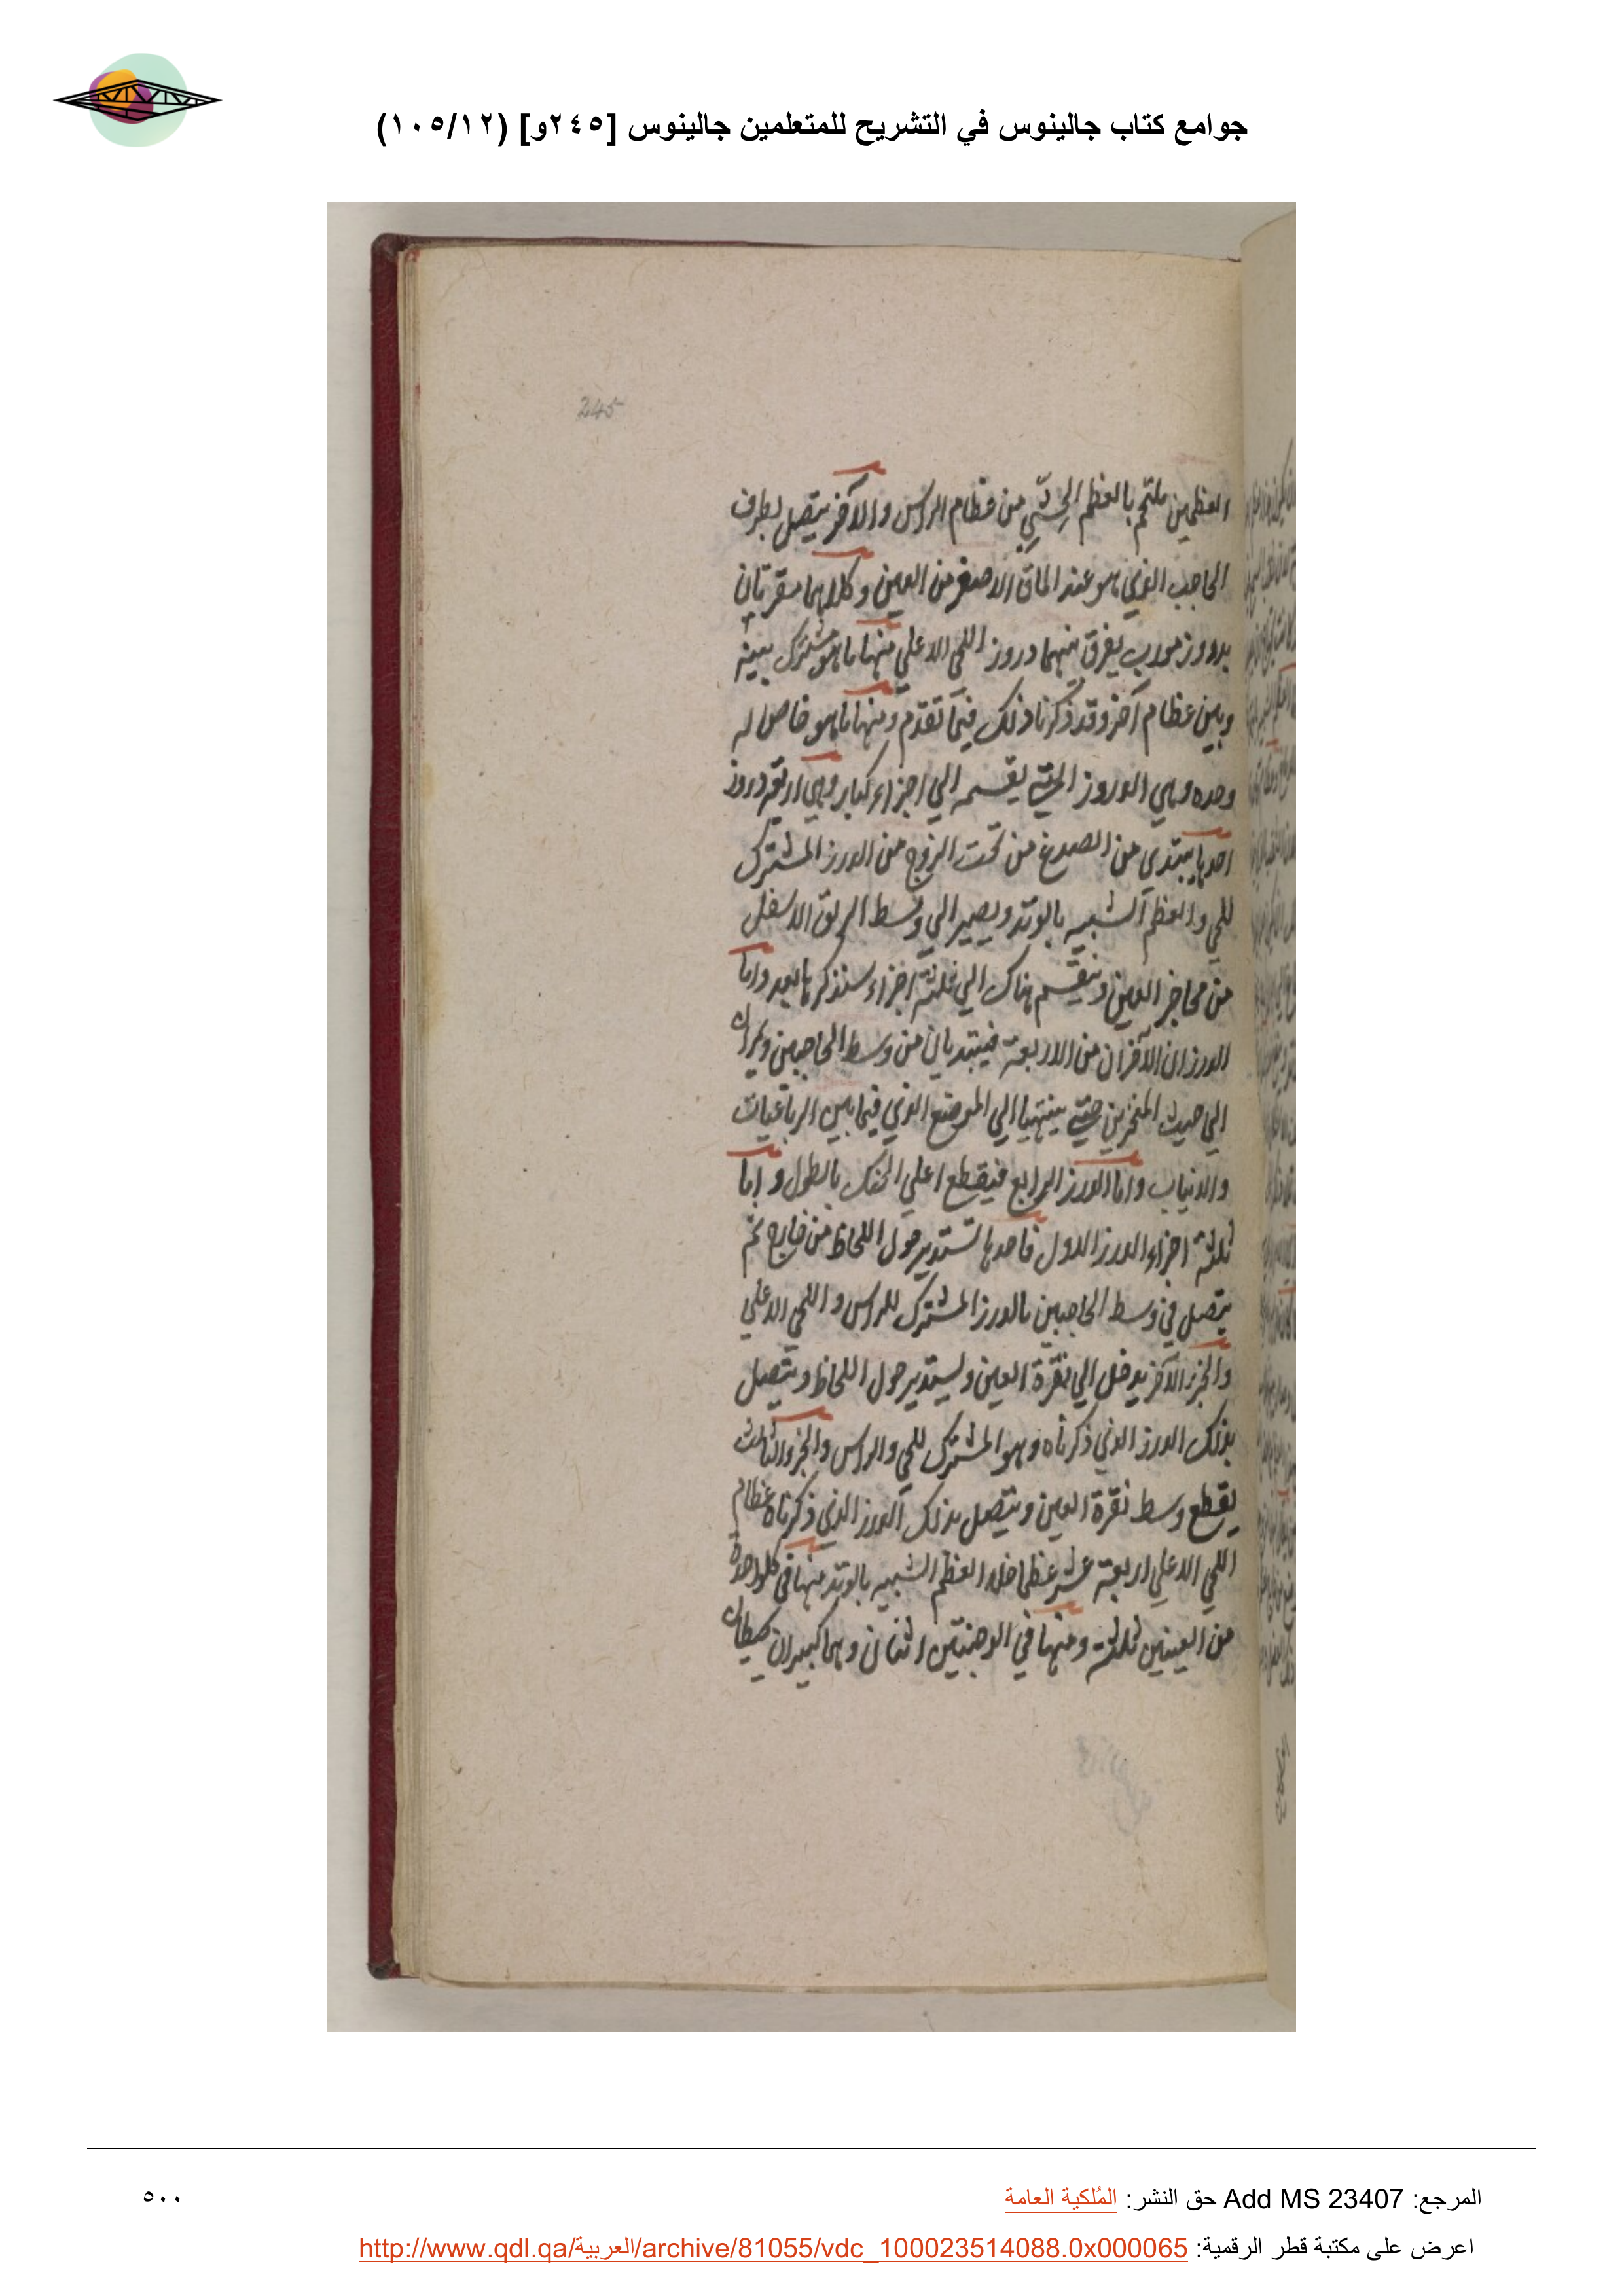 جوامع كتاب جالينوس في التشريح للمتعلمين جالينوس [٢٤٥و] (١٠٥/١٢)
245
العظمين ملتحم بالعظم الحجري من عظام الراس والآخر يتصل بطرف
الحاجب الذي هو عند الماق الاصغر من العين وكلاهما مقرنان
بدروز مورب يفرق بينهما دروز اللحي الاعلي منها ما هو مشترك بينه
وبين عظام آخر وقد ذكرنا ذلك فيما تقدم ومنها ما هو خاص له
وحده وهي الدروز التي يقسمه الي اجزاء كبار وهي اربعة دروز
احدها يبتدي من الصدغ من تحت الزوج من الدرز المشترك
للحي والعظم الشبيه بالوتد ويصير الي وسط الاسفل
من محاجر العين وينقسم هناك الي ثلثة اجزاء سنذكرها بعد واما
الدرزان الآخران من الاربعة فيبتديان من وسط الحاجبين ويمران
الي حيث المنخرين حتي ينتهيا الي الموضع الذي فيما بين الرباعيات
والانياب واما الدرز الرابع فيقطع اعلي الحنك بالطول واما
ثلثة اجزاء الدرز الاول فاحدها تستدير حول اللحاظ من خارج ثم
يتصل في وسط الحاجبين بالدرز المشترك للراس واللحي الاعلي
والجزء الآخر يدخل الي نقرة العين ويستدير حول اللحاظ ويتصل
بذلك الدرز الذي ذكرناه وهو المشترك للحي والراس والجزء الثالث
يقطع وسط نقرة العين ويتصل بذلك الدرز الذي ذكرناه عظام
اللحي الاعلي اربعة عشر عظما خلا العظم الشبيه بالوتد منها في كل واحدة
من العينين ثلثة ومنها في الوجنتين اثنان وهما كبيران يحيطان
المرجع: Add MS 23407 حق النشر: المُلكية العامة
٥٠٠
اعرض على مكتبة قطر الرقمية: http://www.qdl.qa/العربية/archive/81055/vdc_100023514088.0x000065